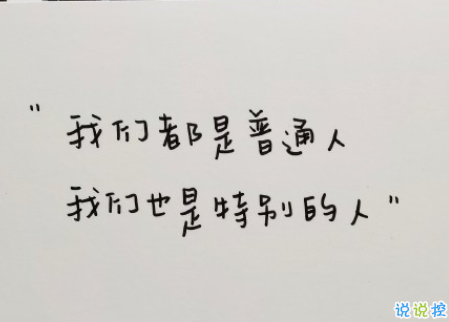 "我们都是普通人
我们也是特别的人"
说说控